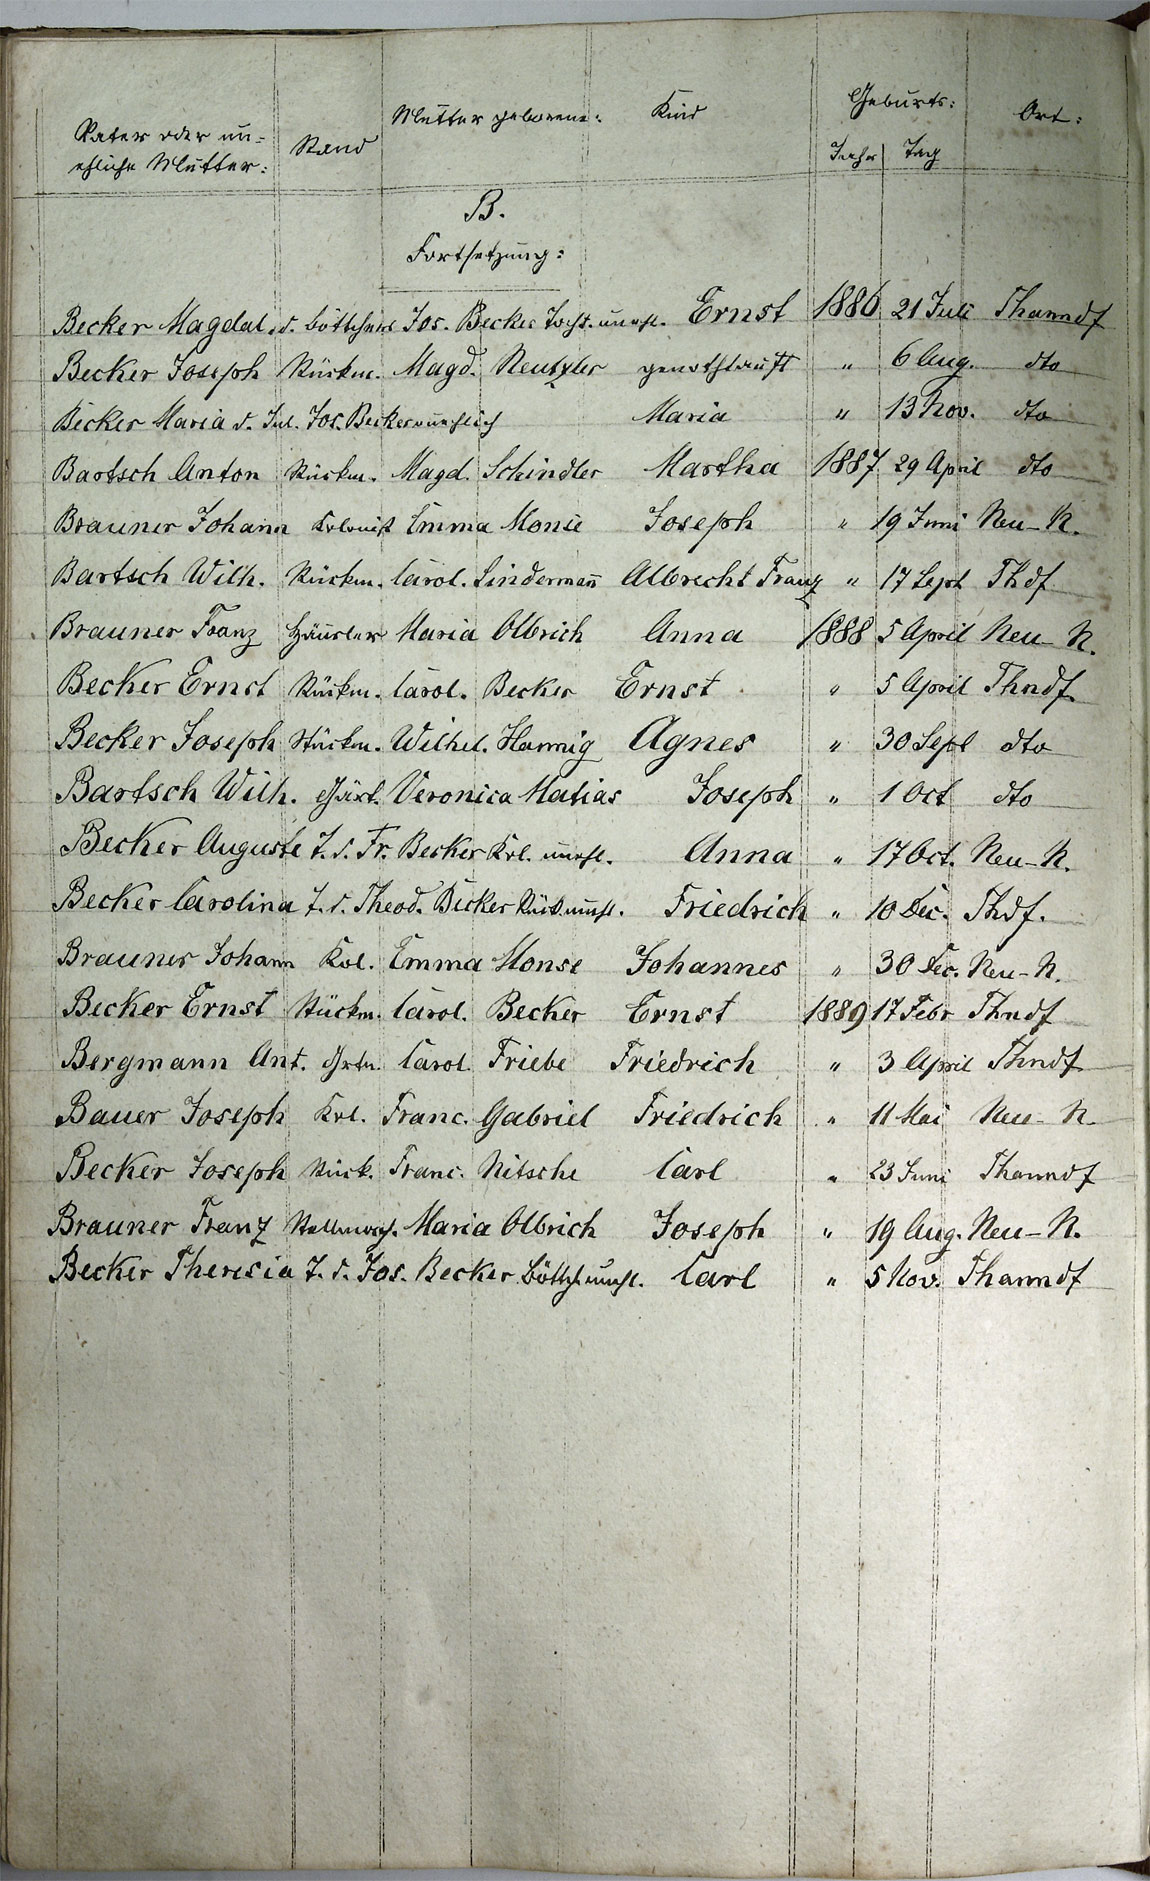 Vater oder un-
ehliche Mutter: Stand Mutter geborene: Kind Geburts: Ort:
Jahr Tag
B.
Fortsetzung:
Becker Magdal. d. Böttchers Jos. Becker Tocht. unehl. Ernst 1886 21 Juli Thanndf
Becker Joseph Stückm. Magd. Neutzler genothtauft " 6 Aug. dto
Becker Maria d. Jos. Becker unehlich Maria " 13 Nov. dto
Bartsch Anton Stückm. Magd. Schindler Martha 1887 29 April dto
Brauner Johann Kolonist Emma Monse Joseph " 19 Juni Neu-N.
Bartsch Wilh. Stückm. Carol. Lindermañ Albrecht Franz " 17 Sept Thdf
Brauner Franz Häusler Maria Olbrich Anna 1888 5 April Neu-N.
Becker Ernst Stückm. Carol. Becker Ernst " 5 April Thndf
Becker Joseph Stückm. Wilhel. Hannig Agnes " 30 Sept dto
Bartsch Wilh. Gärt. Veronica Matias Joseph " 1 Oct dto
Becker Auguste T. d. Fr. Becker Kol. unehl. Anna " 17 Oct. Neu-N.
Becker Carolina T. d. Theod. Becker Stück. unehl. Friedrich " 10 Dec. Thdf.
Brauner Johann Kol. Emma Monse Johannes " 30 Dec. Neu-N.
Becker Ernst Stückm. Carol. Becker Ernst 1889 17 Febr Thndf
Bergmann Ant. Grtn. Carol. Friebe Friedrich " 3 April Thndf
Bauer Joseph Kol. Franc. Gabriel Friedrich " 11 Mai Neu-N.
Becker Joseph Stück. Franc. Nitsche Carl " 23 Juni Thanndf
Brauner Franz Stellmach. Maria Olbrich Joseph " 19 Aug. Neu-N.
Becker Theresia T. d. Jos. Becker Böttch. unehl. Carl " 5 Nov. Thanndf